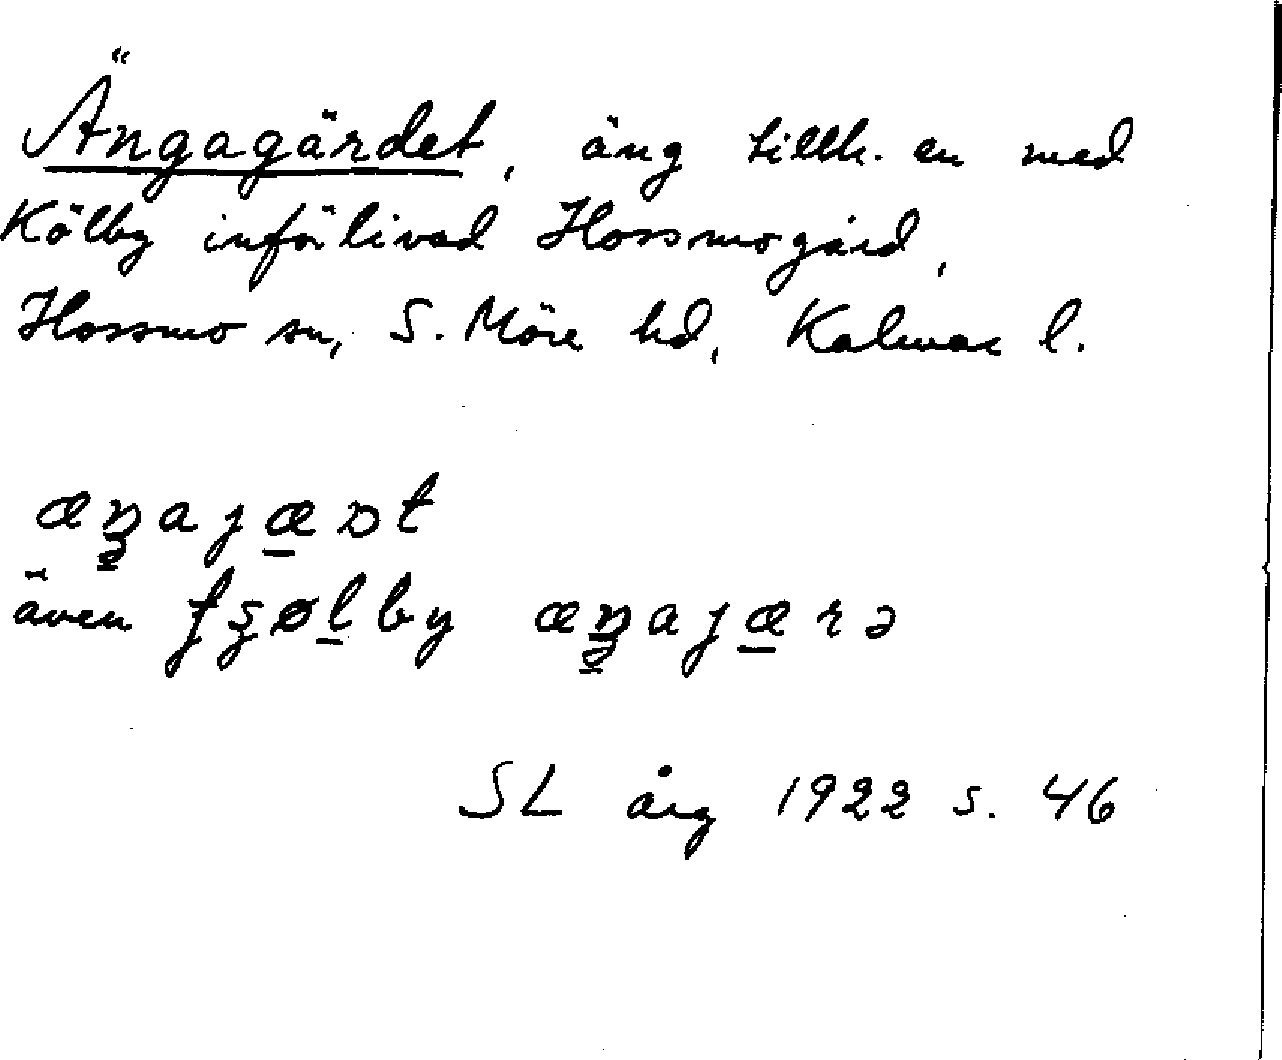 Ängagärdet, äng tillh. en med
Kölby införlivad Hossmogård,
Hossmo sn, S. Möre hd, Kalmar l.
æŋajæɒt
även ʄʂøl̲by æŋajærə
SL årg 1922 s. 46